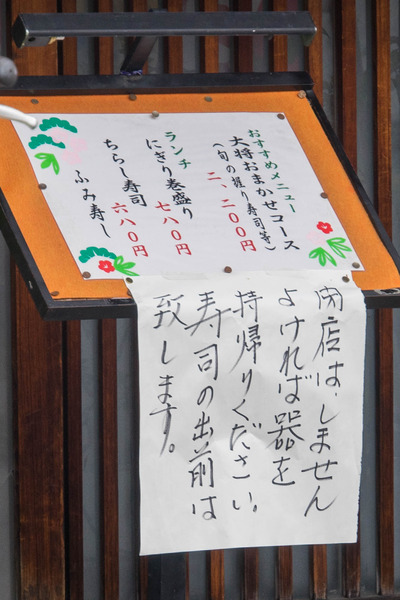 おすすめメニュー
大将おまかせコース
(旬の握り寿司等)
二、二〇〇円
ランチ
にぎり巻盛り
七八〇円
ちらし寿司
六八〇円
ふみ寿し
閉店は、しません
よければ器を
持帰りください。
寿司の出前は
致します。